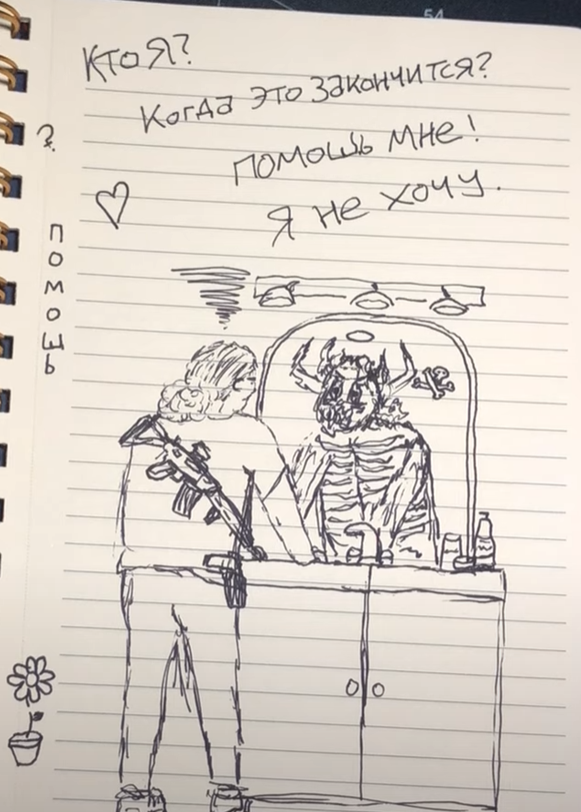 54
Кто Я?
Когда это закончится?
?
помошь мне!
Я не хочу.
помошь